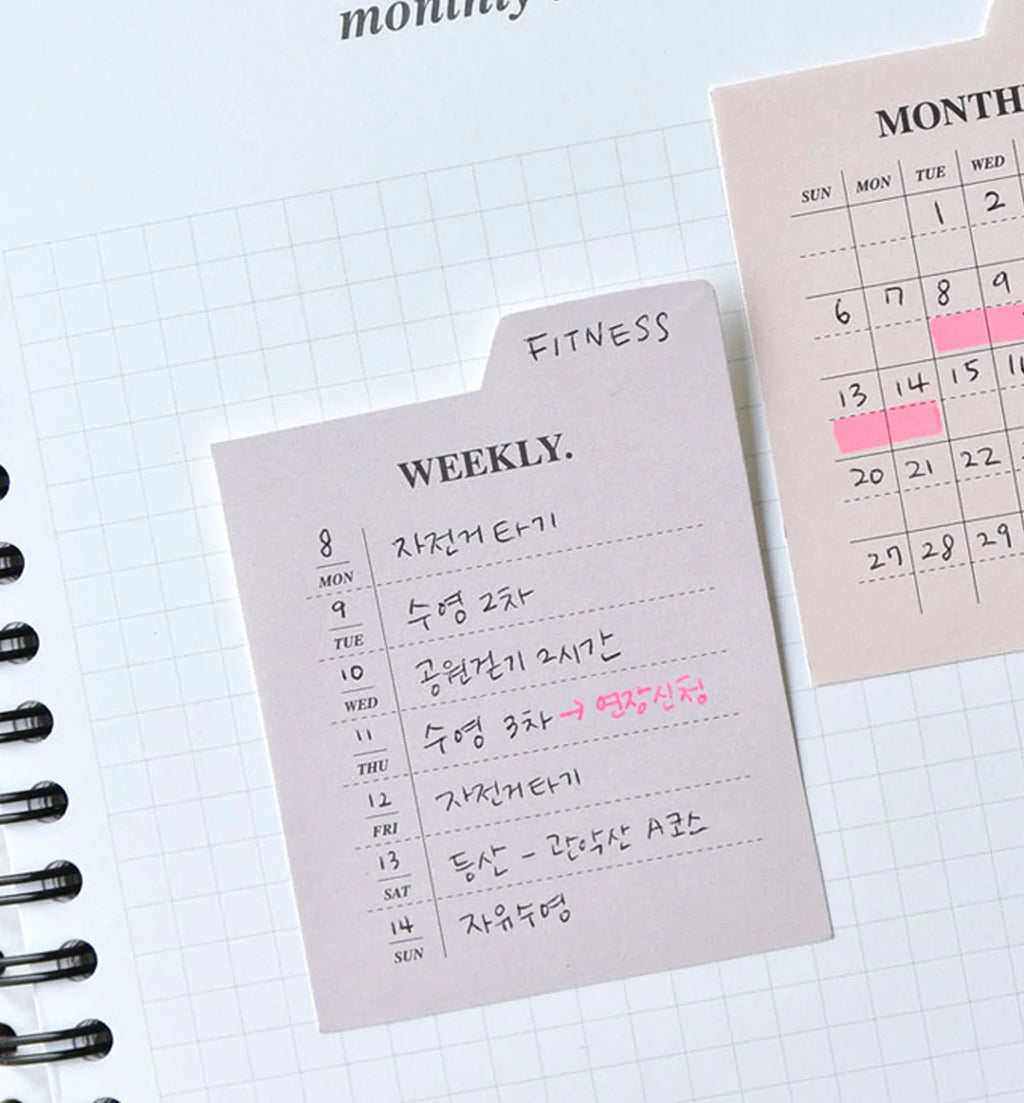 monthly
FITNESS
WEEKLY.
8 MON 자전거 타기
9 TUE 수영 2차
10 WED 공원걷기 2시간
11 THU 수영 3차 → 연장신청
12 FRI 자전거타기
13 SAT 등산 - 관악산 A코스
14 SUN 자유수영
MONTH
SUN MON TUE WED
1 2
6 7 8 9
13 14 15
20 21 22
27 28 29